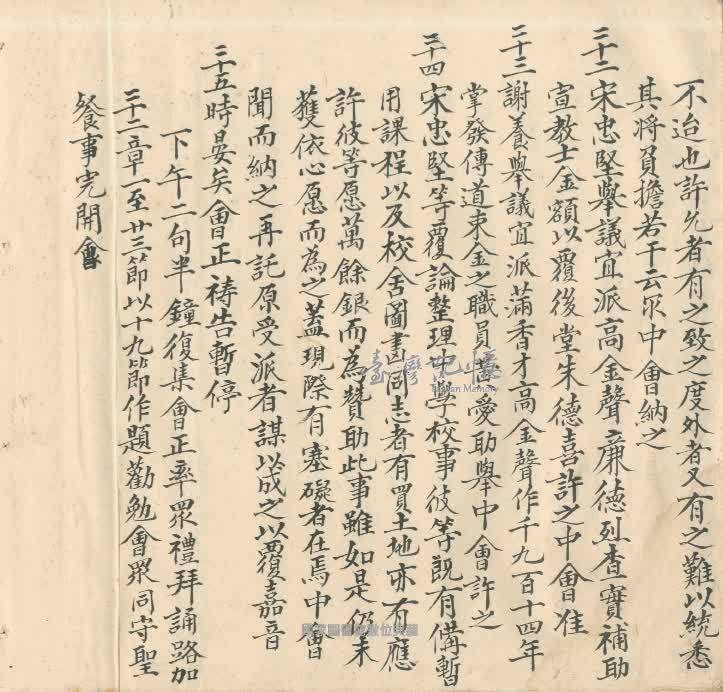 不迨也許允者有之致之度外者又有之難以統悉
其將負擔若干云爾中會納之
三十二宋忠堅舉議宜派高金聲廉德烈查實補助
宣教士金額以覆後堂朱德喜許之中會准
三十三謝養舉議宜派滿香才高金聲作千九百十四年
掌發傳道束金之職員黃愛助舉中會許之
三十四宋忠堅等覆論整理中學校事彼等既有備暫
用課程以及校舍圖畫同志者有買土地亦有應
許彼等愿萬餘銀而為贊助此事雖如是仍未
獲依心愿而為之蓋現際有塞礙者在焉中會
聞而納之再託原受派者謀以成之以覆嘉音
三十五時晏矣會正禱告暫停
下午二句半鐘復集會正率眾禮拜誦路加
二十二章一至廿三節以十九節作題勸勉會眾同守聖
餐事完開會
臺灣記憶
Taiwan Memory
國家圖書館數位典藏